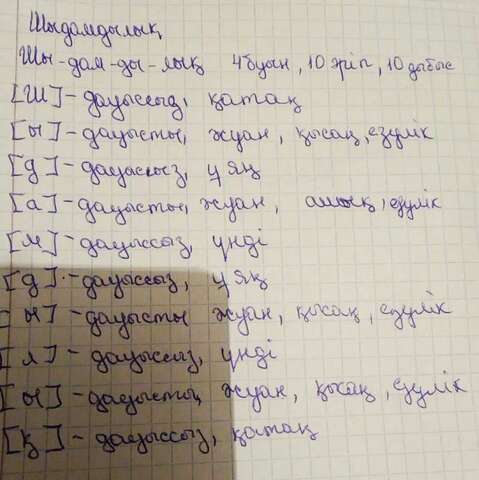 Шыдамдылық
Шы-дам-ды-лық 4 буын, 10 әріп, 10 дыбыс
[ш] - дауыссыз, қатаң
[ы] - дауысты, жуан, қысаң, езулік
[д] - дауыссыз, ұяң
[а] - дауысты, жуан, ашық, езулік
[м] - дауыссыз, үнді
[д] - дауыссыз, ұяң
[ы] - дауысты жуан, қысаң, езулік
[л] - дауыссыз, үнді
[ы] - дауысты, жуан, қысаң, езулік
[қ] - дауыссыз, қатаң